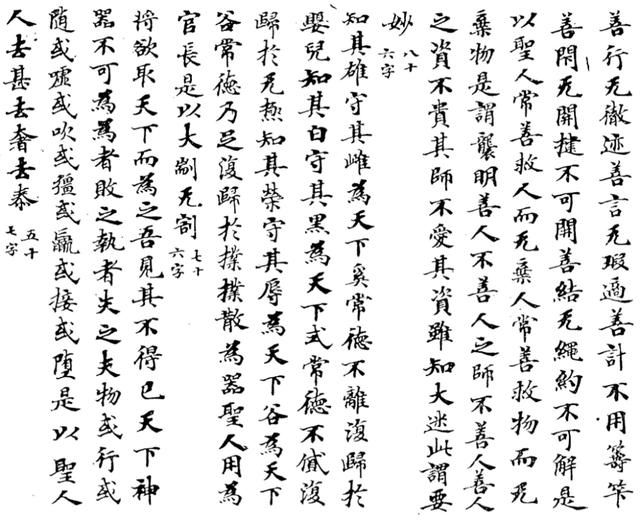 善行无徹迹善言无瑕適善計不用籌筭
善閇无開揵不可開善結无繩約不可解是
以聖人常善救人而无棄人常善救物而无
棄物是謂襲明善人不善人之師不善人善人
之資不貴其師不愛其資雖知大迷此謂要
妙 八十六字
知其雄守其雌為天下奚常德不離復歸於
嬰兒知其白守其黑為天下式常德不貸復
歸於无極知其榮守其辱為天下谷為天下
谷常德乃足復歸於樸樸散為器聖人用為
官長是以大制无割 七十六字
将欲取天下而為之吾見其不得已天下神
器不可為為者敗之執者失之夫物或行或
随或噓或吹或彊或羸或接或堕是以聖人
人去甚去奢去泰 五十七字